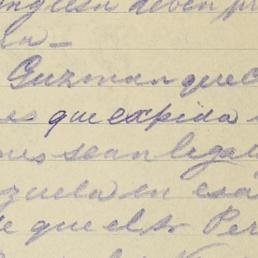 inglesa deben pr
Guzman que
es que expida
sean legal
zuela en esa
e que el sr Per